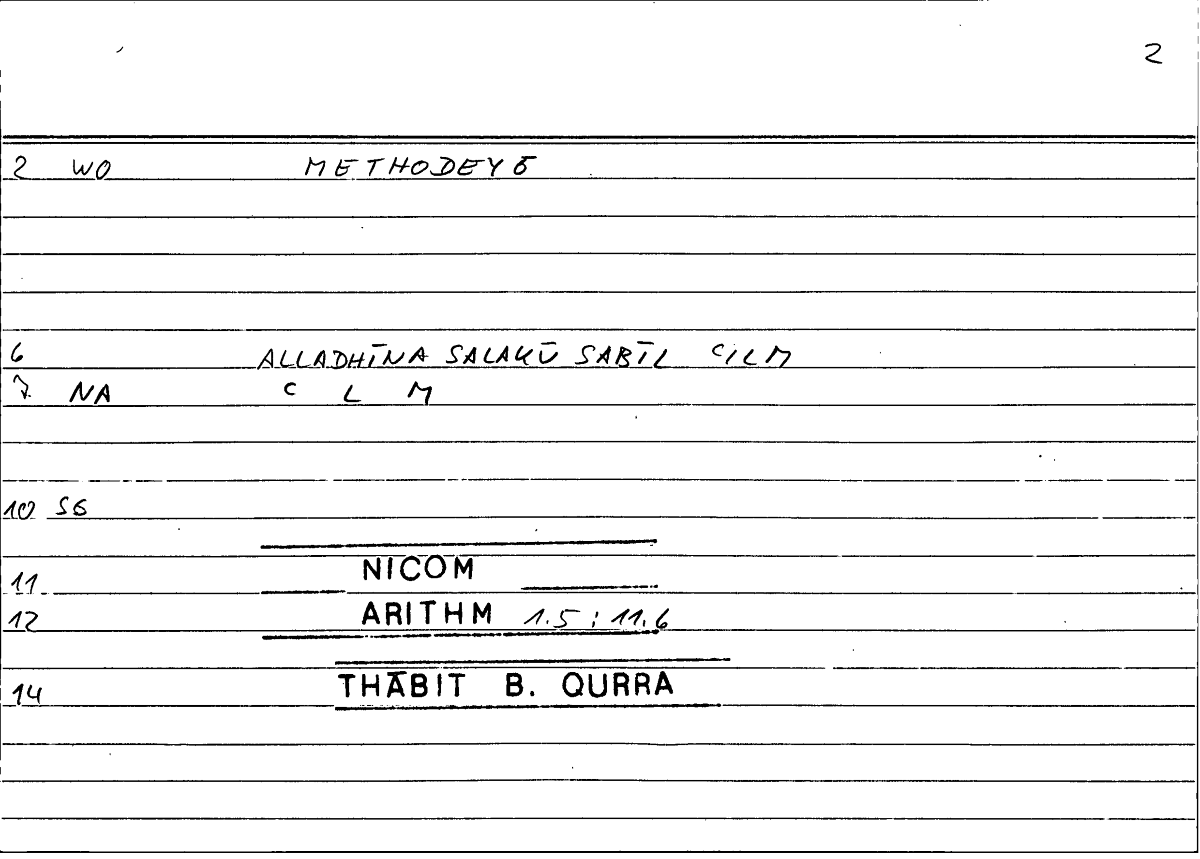 2
2 WO METHODEYŌ
6 ALLADHĪNA SALAKŪ SABĪL CILM
7 NA C L M
10 SG
11 NICOM
12 ARITHM 1.5 ; 11.6
14 THĀBIT B. QURRA